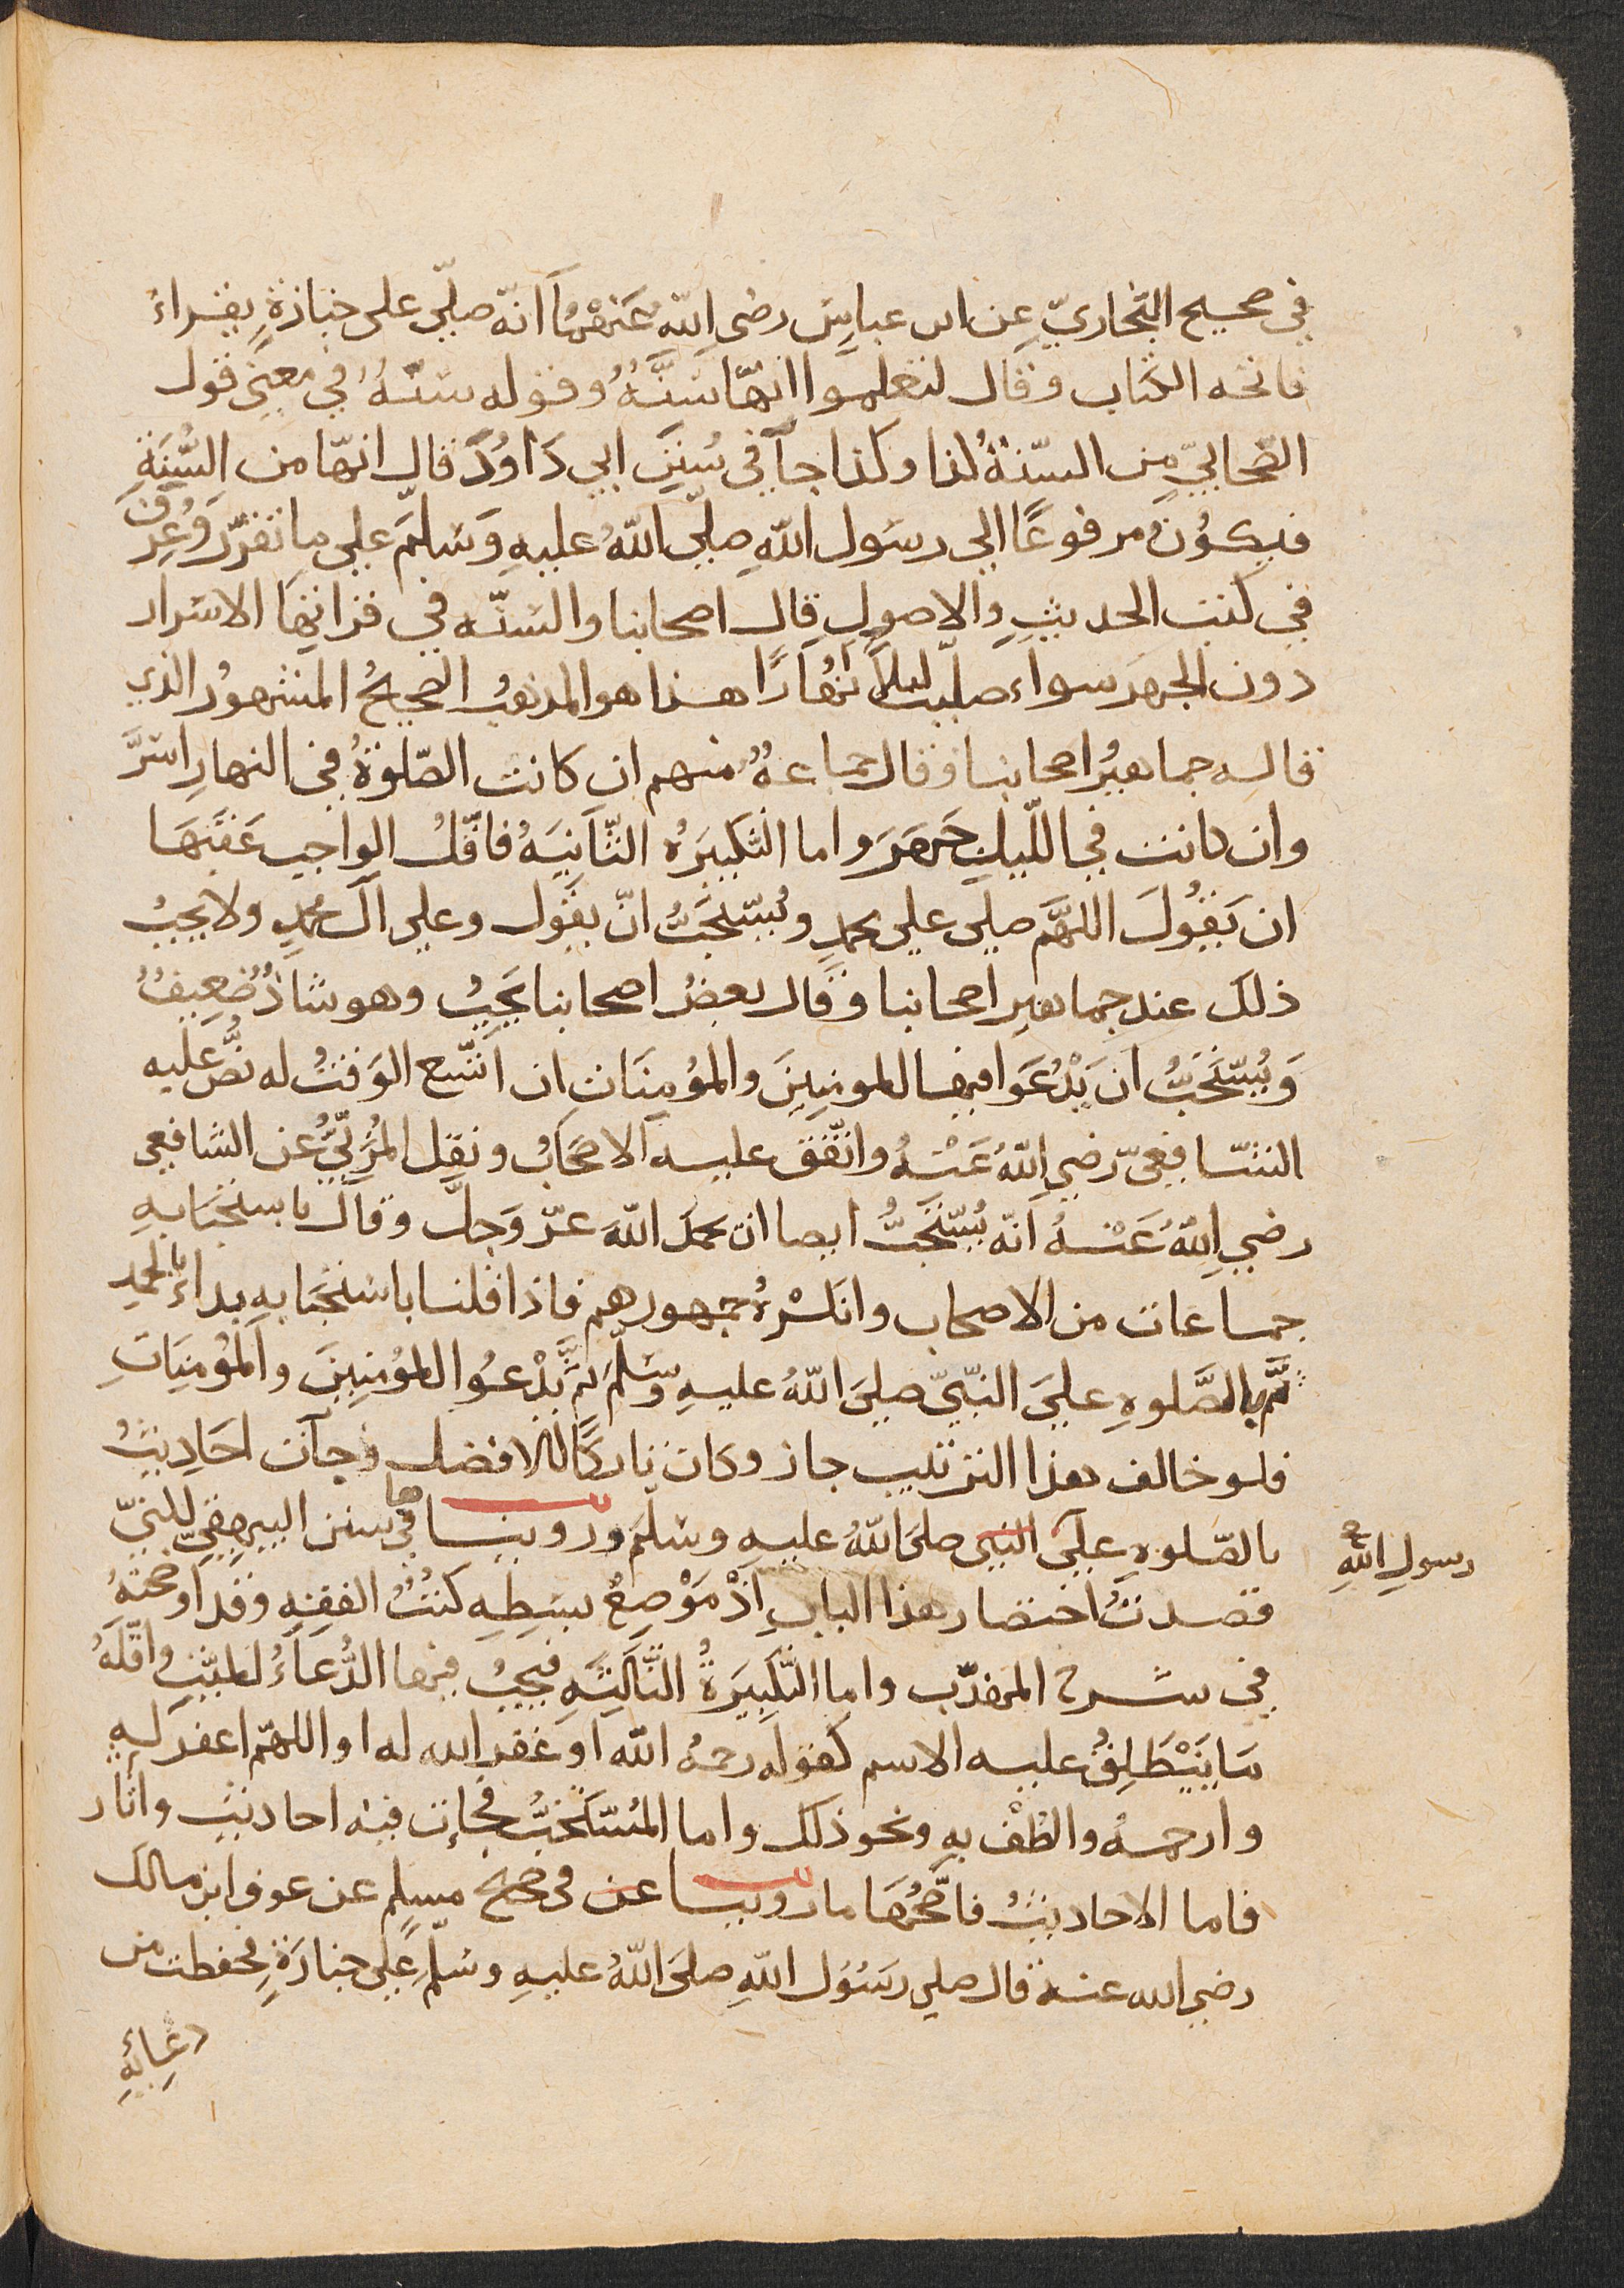 في صحيح البخاريّ عن ابن عباس رضي الله عنهما انّه صلّي على جنازةٍ بقراءَ
فاتحه الكتاب وقال لتعلموا انهّا سنَّهٌ وقوله سنّهٌ في معنَى قول
الصّحابيّ من السنّةُ كذا وكذا جآ في سُننِ ابي دَاوُدَ قال انهّا من السُّنَةِ
فيكوُنُ مرفوعًا الي رسَول اللهِ صلّي اللهُ عليهِ وَسَلّمَ علي ما تقرّرَ وَعُرِفَ
في كتب الحديثِ والاصولِ قال اصحابنا والسّنّه في قراتها الاسَرار
دون الجهرَ سواء صليت ليلًا ام نهَارًا هذا هو المذهبُ الصحيحُ المشهورُ الذي
قاله جماهيرُ اصحابنا وقال جماعهٌ منهم ان كانت الصّلوةُ في النهارِ اسَرَّ
وان كانت في اللّيلِ جَهَرَ واما التكبيَرهُ الثّاَنيَهُ فاقّلُ الواجبِ عَقَبَهَا
ان يَقُولَ اللهَّمَ صلي علي محمدٍ ويُسّتحَبُّ انّ يقوَل وعلي آل محمدٍ ولا يجبُ
ذلكَ عند جماهيرِ اصحابنا وقال بعضُ اصحابنا يَجِبُ وهو شاذٌ ضعِيفٌ
وَيُسّتَحَبُّ ان يَدْعُوَا فيها للمومنِينَ والمؤمِنَاتِ ان اتّسعَ الوَقتُ له نصُّ عليه
الشّافعيّ رضي اللهُ عَنْهُ واتفّق عليه الاصحَابُ ونقل المُزنيّ عن الشافعي
رضي اللهُ عَنْهُ انّه يُسّتحَبُّ ايضا ان يحمَد اللهَ عزّ وَجلّ وقال باستحَبَابِهِ
جماعات من الاصحاب وانكَرْهُ جمهورهم فاذا قلنا باسْتحَبابهِ بداءَ بالحمدِ
ثمَّ بالصَّلوهِ عليَ النبّيّ صليَ اللهُ عليهِ وسَلّمَ ثمَّ يَدْعُوا للمؤمنِينَ والمؤمِنَاتِ
فلو خالف هذا الترتيب جاز وكان تاركًا للافضل وجآت احَاديثُ
بالصّلوهِ عليَ النبي صليَ اللهُ عليهِ وسَلّمَ وروينا ها في سنن البيهقيّ للنبيّ
رسولِ اللهِ
قصدتُ اختصار هذا البابِ اذْ مَوْضِعُ بسَطِهِ كتُبُ الفقِهِ وقد اوضحتهُ
في شرح المهذّب واما التّكبيَرةُ الثّالثِهِ فيجبُ فيها الدُّعاَءُ للميّتِ واقلّهُ
ما يَنْطَلِقُ عليه الاسم كقوله رحمهُ اللهَ اوَ غفر الله له او اللهمّ اغفر له
وارحمهُ والطُفْ بهِ ونحو ذلكَ واما المُستَحَبُّ فجآت فيه احاديث واثار
فاما الاحاديثُ فاصّحُهَا ما روينا عن في صحيح مسلِم عن عوف ابن مالك
رضي الله عنه قال صلي رسَوُل اللهِ صلَي اللهُ عليهِ وسَلّم علي جنازَةٍ فحفظت من
دعَائهِ